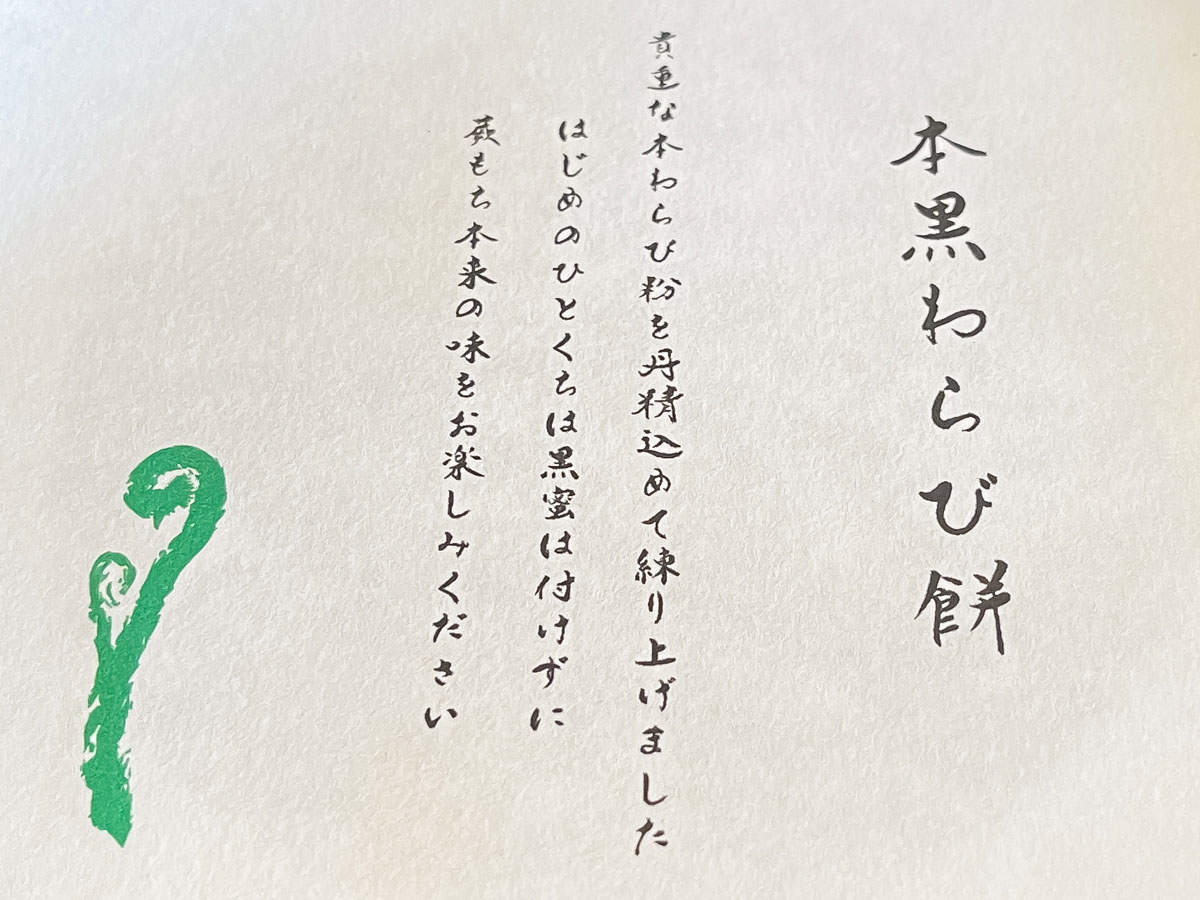 本黒わらび餅
貴重な本わらび粉を丹精込めて練り上げました
はじめのひとくちは黒蜜は付けずに
蕨もち本来の味をお楽しみください